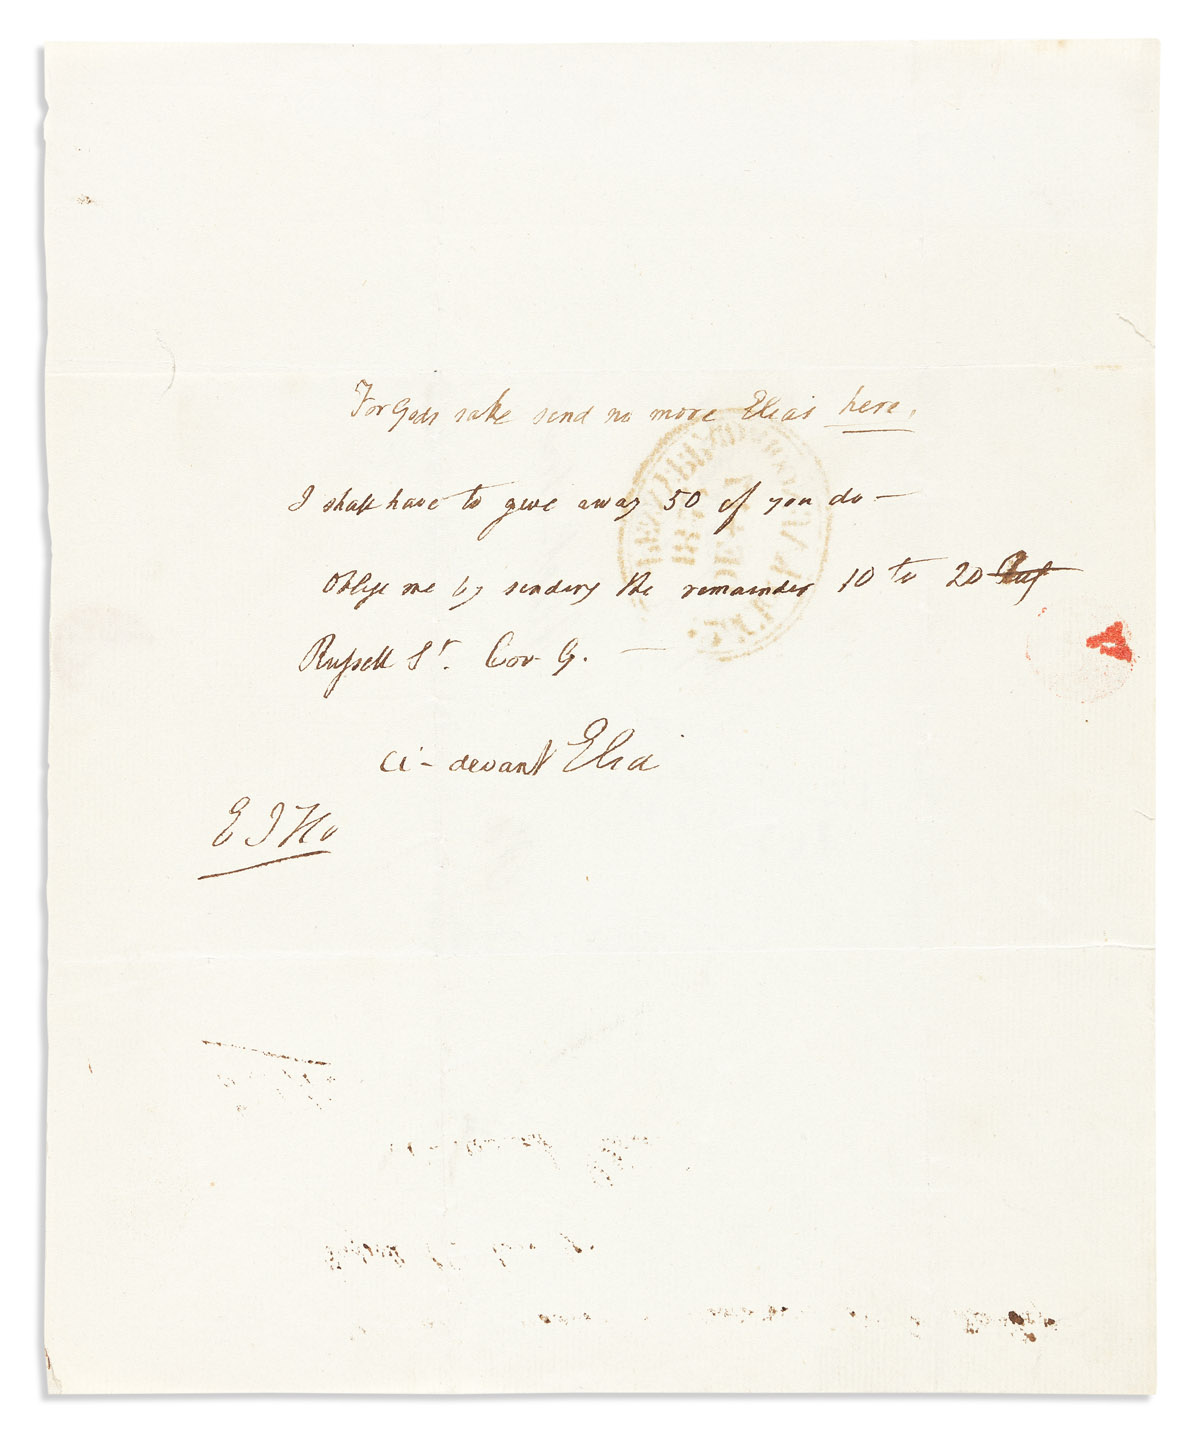 For Gods sake send no more Elias here.
I shall have to give away 50 if you do —
Oblige me by sending the remainder 10 to 20
Russell St. Cov. G. —
ci-devant Elia
E I Ho